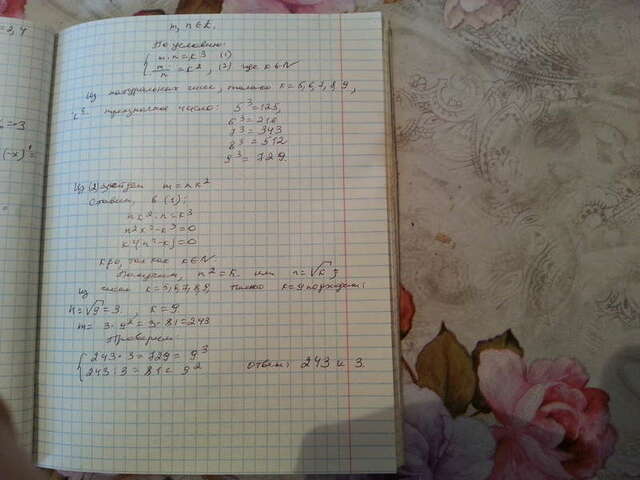 = 3, 4
m, n ∈ Z.
По условию:
m · n = k³ (1)
m/n = k², (2) где k ∈ N
Из натуральных чисел, только k = 5, 6, 7, 8, 9,
k³ трехзначное число: 5³ = 125,
6³ = 216
7³ = 343
8³ = 512
9³ = 729.
Из (2) m = nk²
в (1):
nk² · n = k³
n²k² - k³ = 0
k²(n² - k) = 0
так как k ∈ N
n² = k или n = √k
Из чисел k = 5, 6, 7, 8, 9 только k = 9 подходит:
n = √9 = 3, k = 9
m = 3 · 9² = 3 · 81 = 243
Проверим
243 · 3 = 729 = 9³
243 : 3 = 81 = 9²
Ответ: 243 и 3.